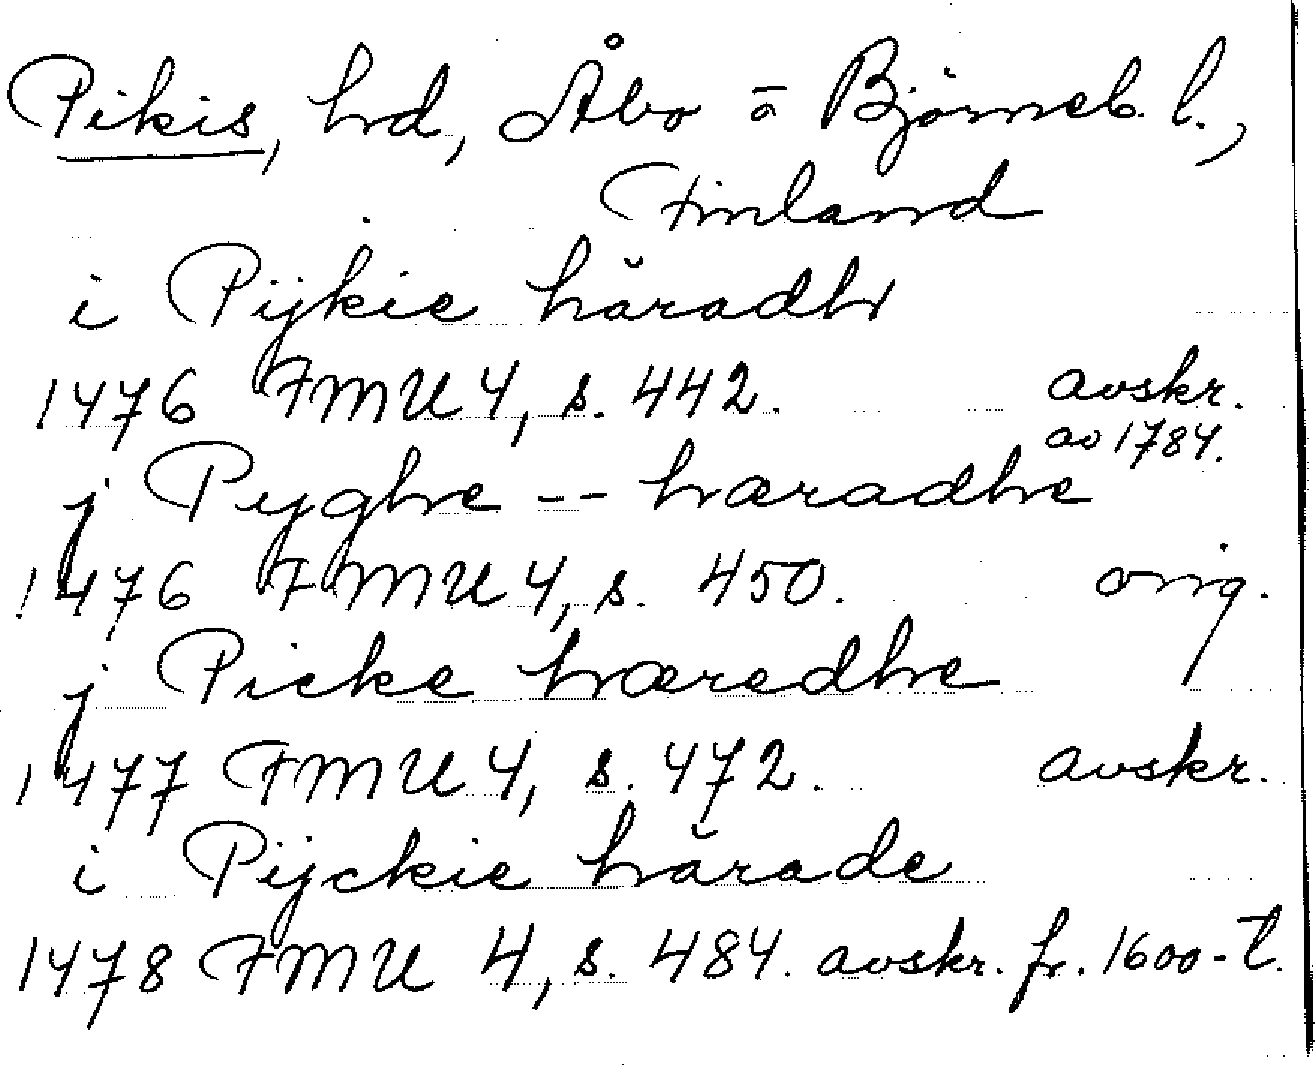 Pikis, hd, Åbo o Björneb. l.,
Finland
i Pijkie häradh
1476 FMU 4, s. 442. avskr.
av 1784.
j Pyghe -- hæradhe
1476 FMU 4, s. 450. orig.
j Picke hæredhe
1477 FMU 4, s. 472. avskr.
i Pijckie härade
1478 FMU 4, s. 484. avskr. fr. 1600-t.